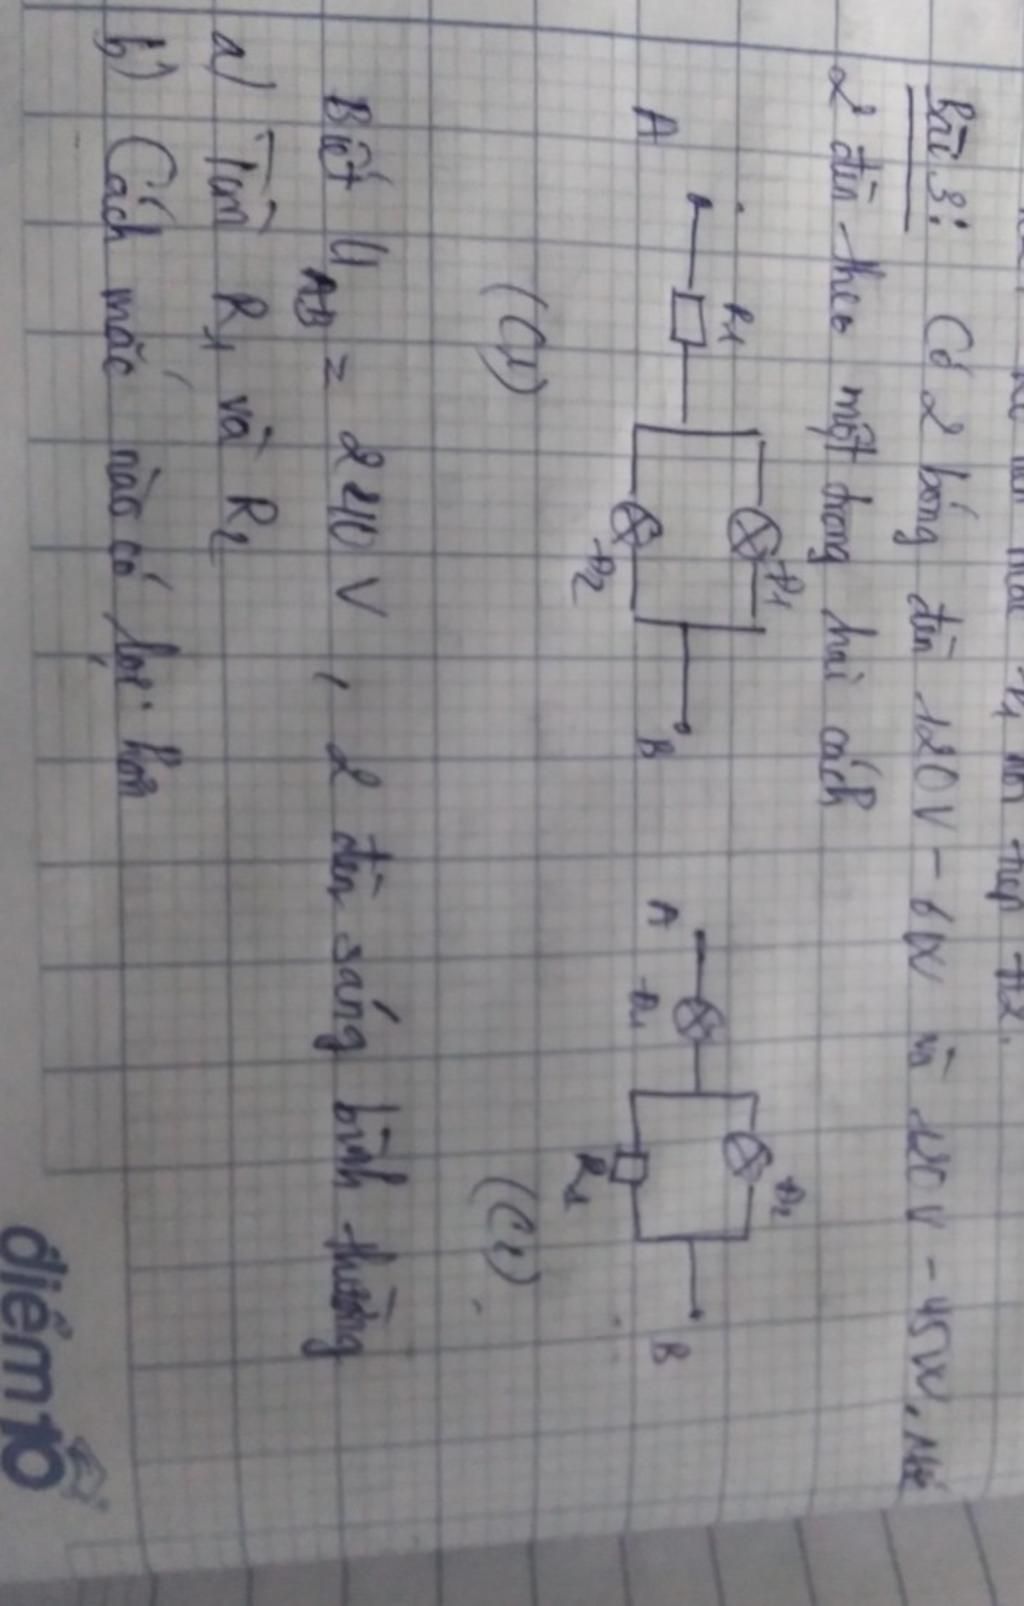 Bài 3: Có 2 bóng đèn 120V - 60W và 120V - 45W.
2 đèn theo một trong hai cách
A R1 Đ1 Đ2 B
A Đ1 Đ2 R2 B
(C1)
(C2)
Biết UAB = 240V, 2 đèn sáng bình thường
a) Tìm R1 và R2
b) Cách mắc nào có lợi hơn
điểm 10